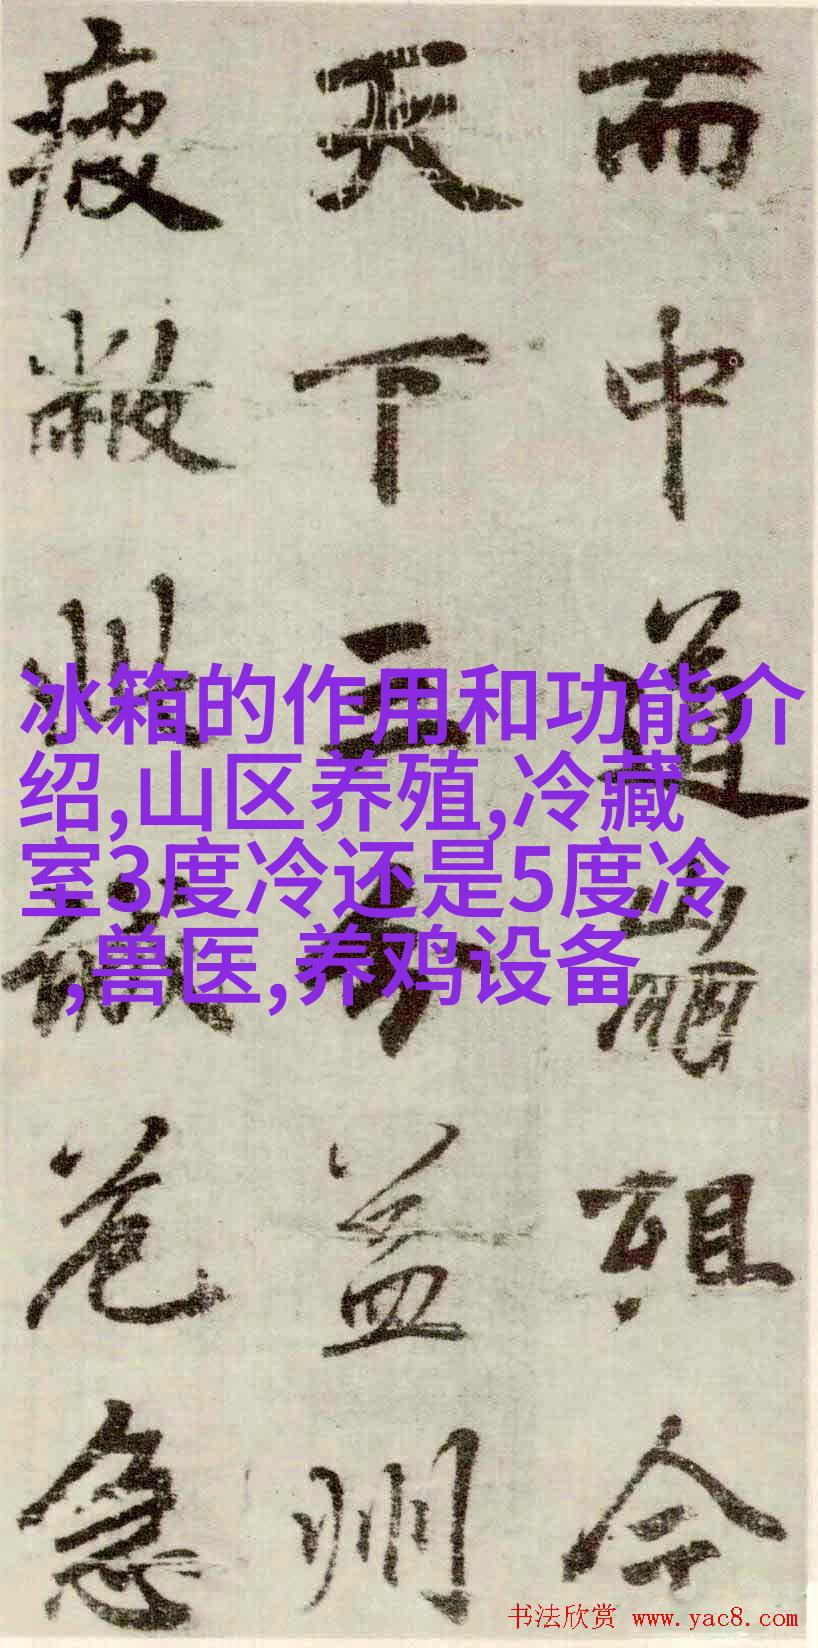 而中道崩殂今
天下三分益州
疲敝此誠危急
冰箱的作用和功能介
绍,山区养殖,冷藏
室3度冷还是5度冷
,兽医,养鸡设备
书法欣赏 www.yac8.com